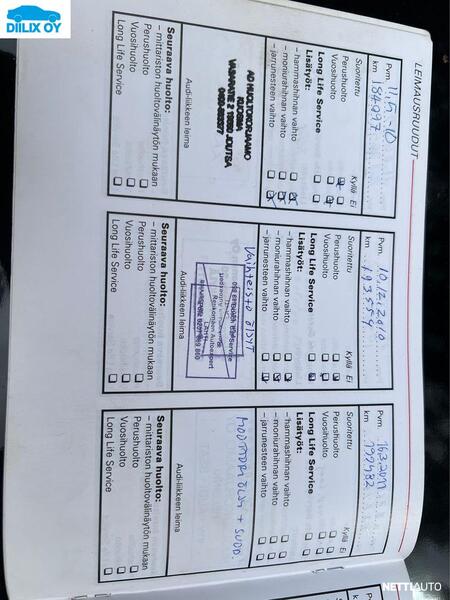 DIILIX OY
LEIMAUSRUUDUT
Pvm. 11.5.-10
km 184097
Suoritettu Kyllä Ei
Perushuolto
Vuosihuolto
Long Life Service
Lisätyöt:
– hammashihnan vaihto
– moniurahihnan vaihto
– jarrunesteen vaihto
AD HUOLTOKORJAAMO
19650 JOUTSA
Audi-liikkeen leima
Seuraava huolto:
– mittariston huoltovälinäytön mukaan
Perushuolto
Vuosihuolto
Long Life Service
Pvm. 10.12.2010
km 193554
Suoritettu Kyllä Ei
Perushuolto
Vuosihuolto
Long Life Service
Lisätyöt:
– hammashihnan vaihto
– moniurahihnan vaihto
– jarrunesteen vaihto
Vaihteisto öljyt
Audi-liikkeen leima
Seuraava huolto:
– mittariston huoltovälinäytön mukaan
Perushuolto
Vuosihuolto
Long Life Service
Pvm. 16.3.2011
km 199482
Suoritettu Kyllä Ei
Perushuolto
Vuosihuolto
Long Life Service
Lisätyöt:
– hammashihnan vaihto
– moniurahihnan vaihto
– jarrunesteen vaihto
MOOTTORIÖLJY + SUOD.
Audi-liikkeen leima
Seuraava huolto:
– mittariston huoltovälinäytön mukaan
Perushuolto
Vuosihuolto
Long Life Service
NETTIAUTO